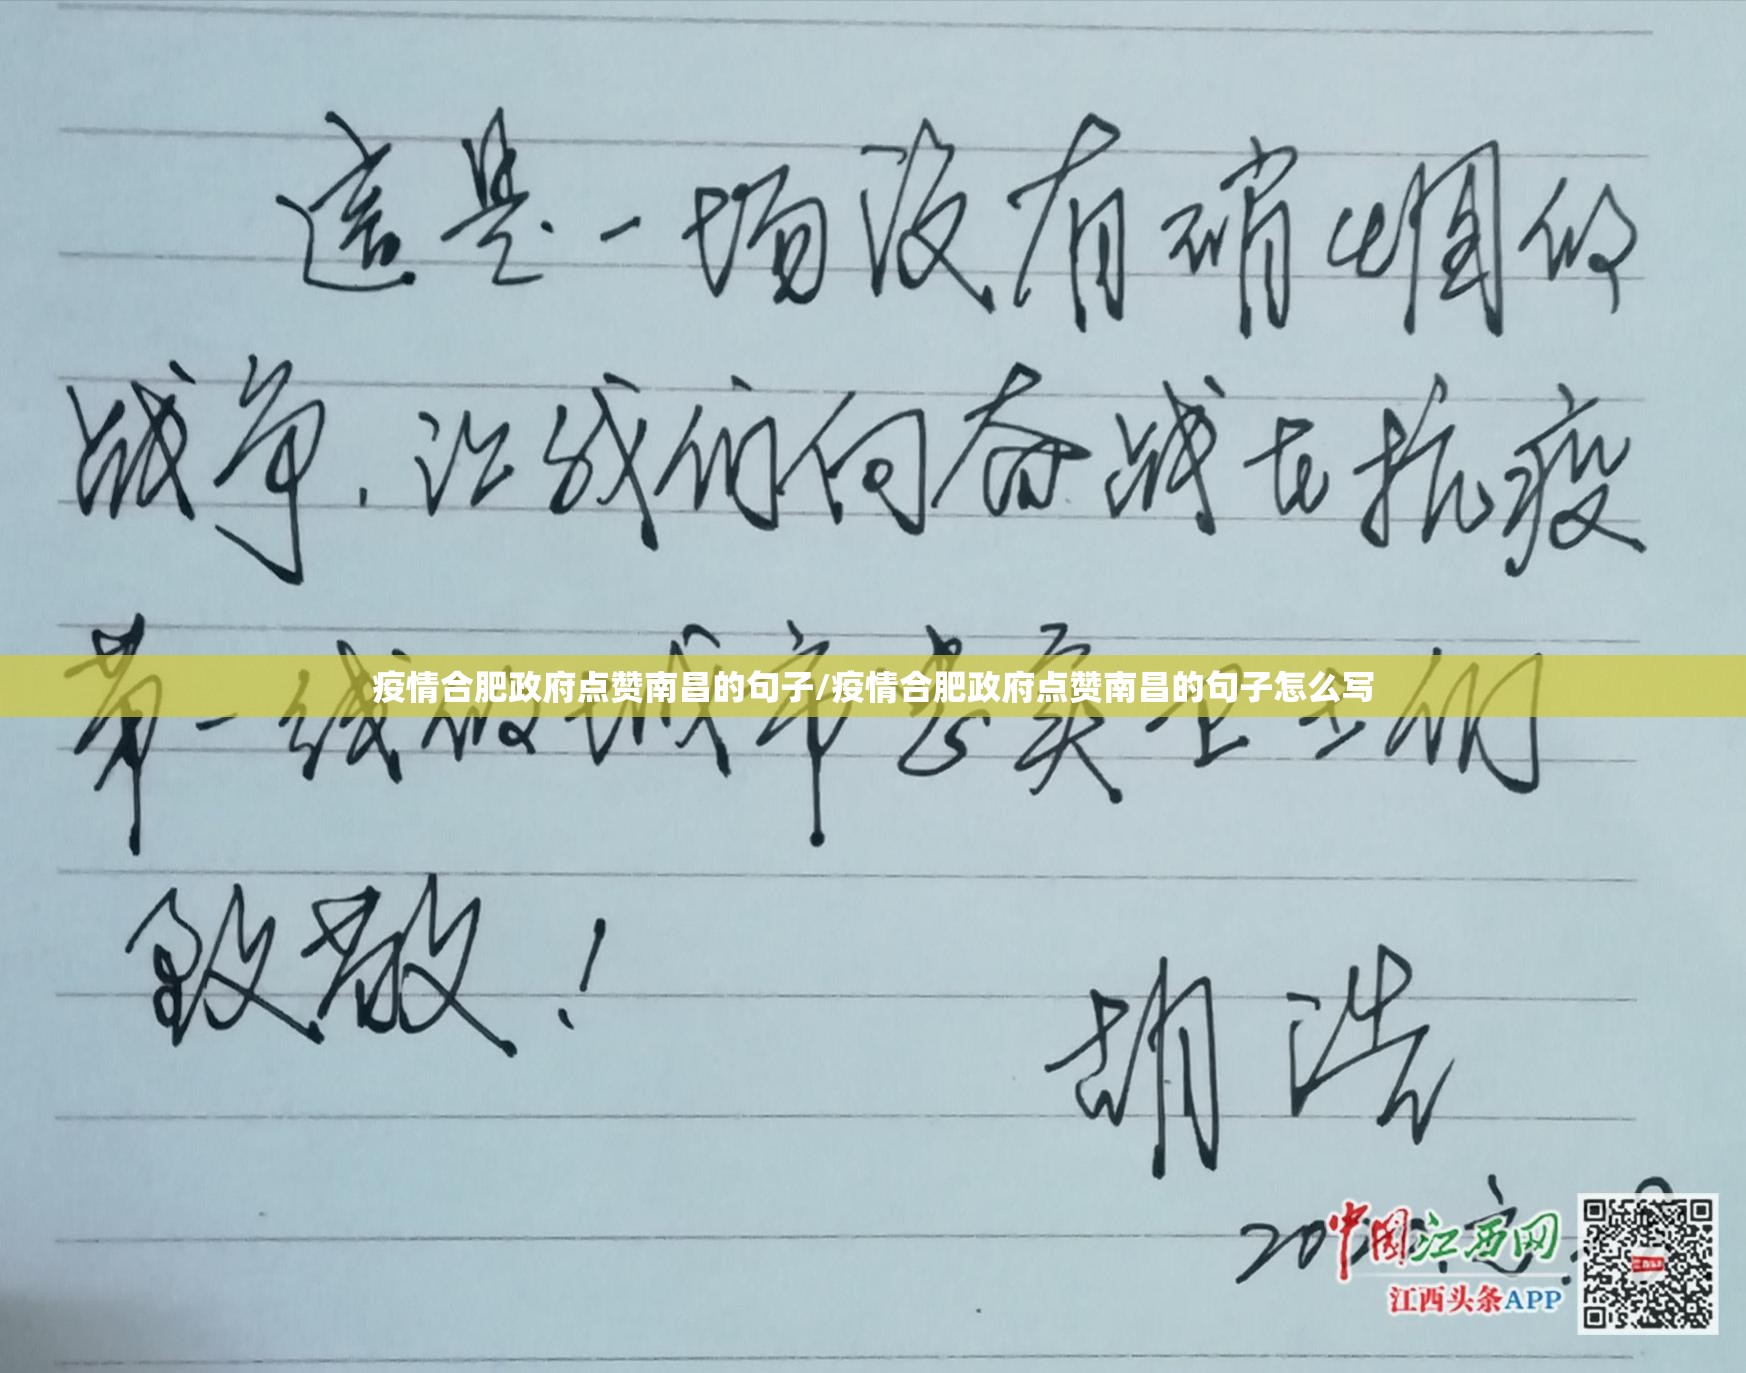 這是一场没有硝烟的
战争,让我们向奋战在抗疫
第一线的城市卫士们
疫情合肥政府点赞南昌的句子/疫情合肥政府点赞南昌的句子怎么写
致敬!
胡浩
中国江西网
江西头条APP